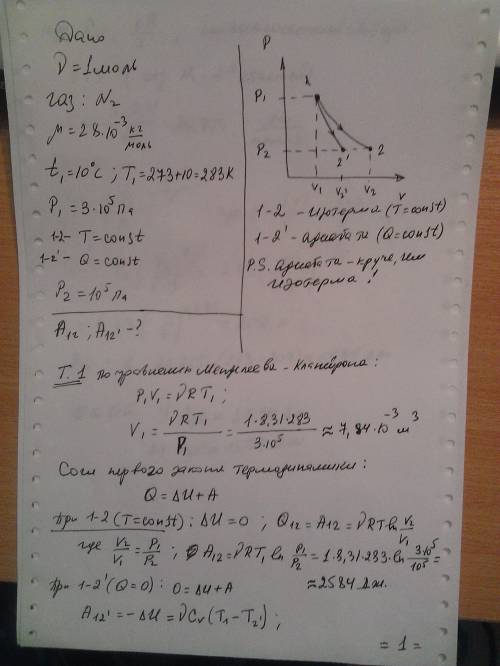 Дано
ν = 1 моль
газ: N₂
μ = 28·10⁻³ кг/моль
t₁ = 10°C ; T₁ = 273+10 = 283K
P₁ = 3·10⁵ Па
1-2 - T = const
1-2' - Q = const
P₂ = 10⁵ Па
A₁₂ ; A₁₂' - ?
P
1
P₁
P₂
2' 2
V₁ V₂' V₂
V
1-2 - изотерма (T=const)
1-2' - адиабата (Q=const)
P.S. адиабата - круче, чем
изотерма!
T.1 по уравнению Менделеева-Клапейрона:
P₁V₁ = νRT₁ ;
V₁ = νRT₁/P₁ = 1·8,31·283/3·10⁵ ≈ 7,84·10⁻³ м³
Согл первого закона термодинамики:
Q = ΔU + A
При 1-2 (T=const): ΔU = 0 ; Q₁₂ = A₁₂ = νRT ln V₂/V₁
где V₂/V₁ = P₁/P₂ ; A₁₂ = νRT₁ ln P₁/P₂ = 1·8,31·283·ln 3·10⁵/10⁵ =
≈ 2584 Дж.
При 1-2' (Q=0): 0 = ΔU + A
A₁₂' = -ΔU = νCᵥ(T₁ - T₂') ;
= 1 =